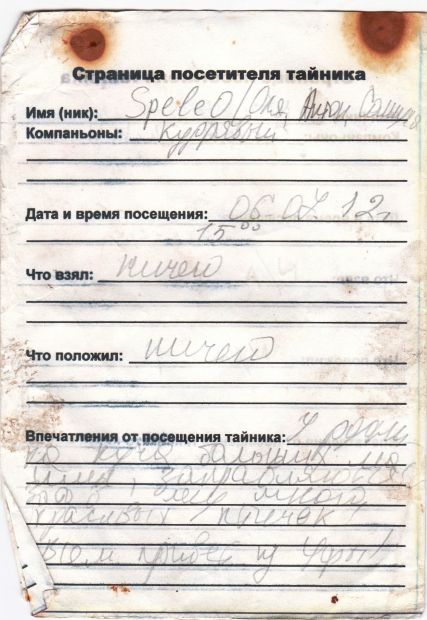 Страница посетителя тайника
Имя (ник): Speleo/Оля, Антон, Сашуля
Компаньоны: Кудрявый
Дата и время посещения: 06.07.12г
15⁰⁰
Что взял: ничего
Что положил: ничего
Впечатления от посещения тайника: У родни
ка куча больших ма
шин, заправляются
водой. много
красивых птичек
Всем привет из Уфы!